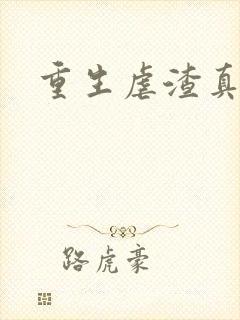 重生虐渣真
路虎豪